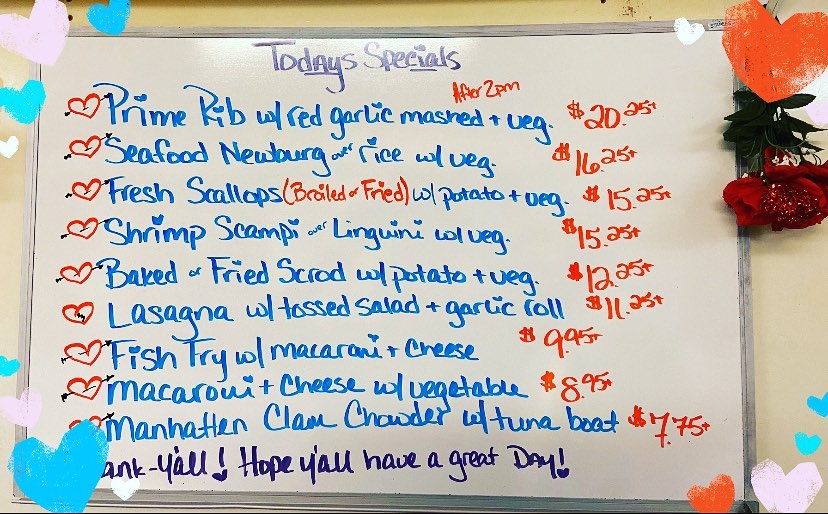 Todays Specials
After 2pm
Prime Rib w/ red garlic mashed + veg. $20.25+
Seafood Newburg over rice w/ veg. $16.25+
Fresh Scallops (Broiled or Fried) w/ potato + veg. $15.25+
Shrimp Scampi over Linguini w/ veg. $15.25+
Baked or Fried Scrod w/ potato + veg. $12.25+
Lasagna w/ tossed salad + garlic roll $11.25+
Fish Fry w/ macaroni + Cheese $9.95+
Macaroni + Cheese w/ vegetable $8.95+
Manhatten Clam Chowder w/ tuna boat $7.75+
ank-y'all! Hope y'all have a great Day!